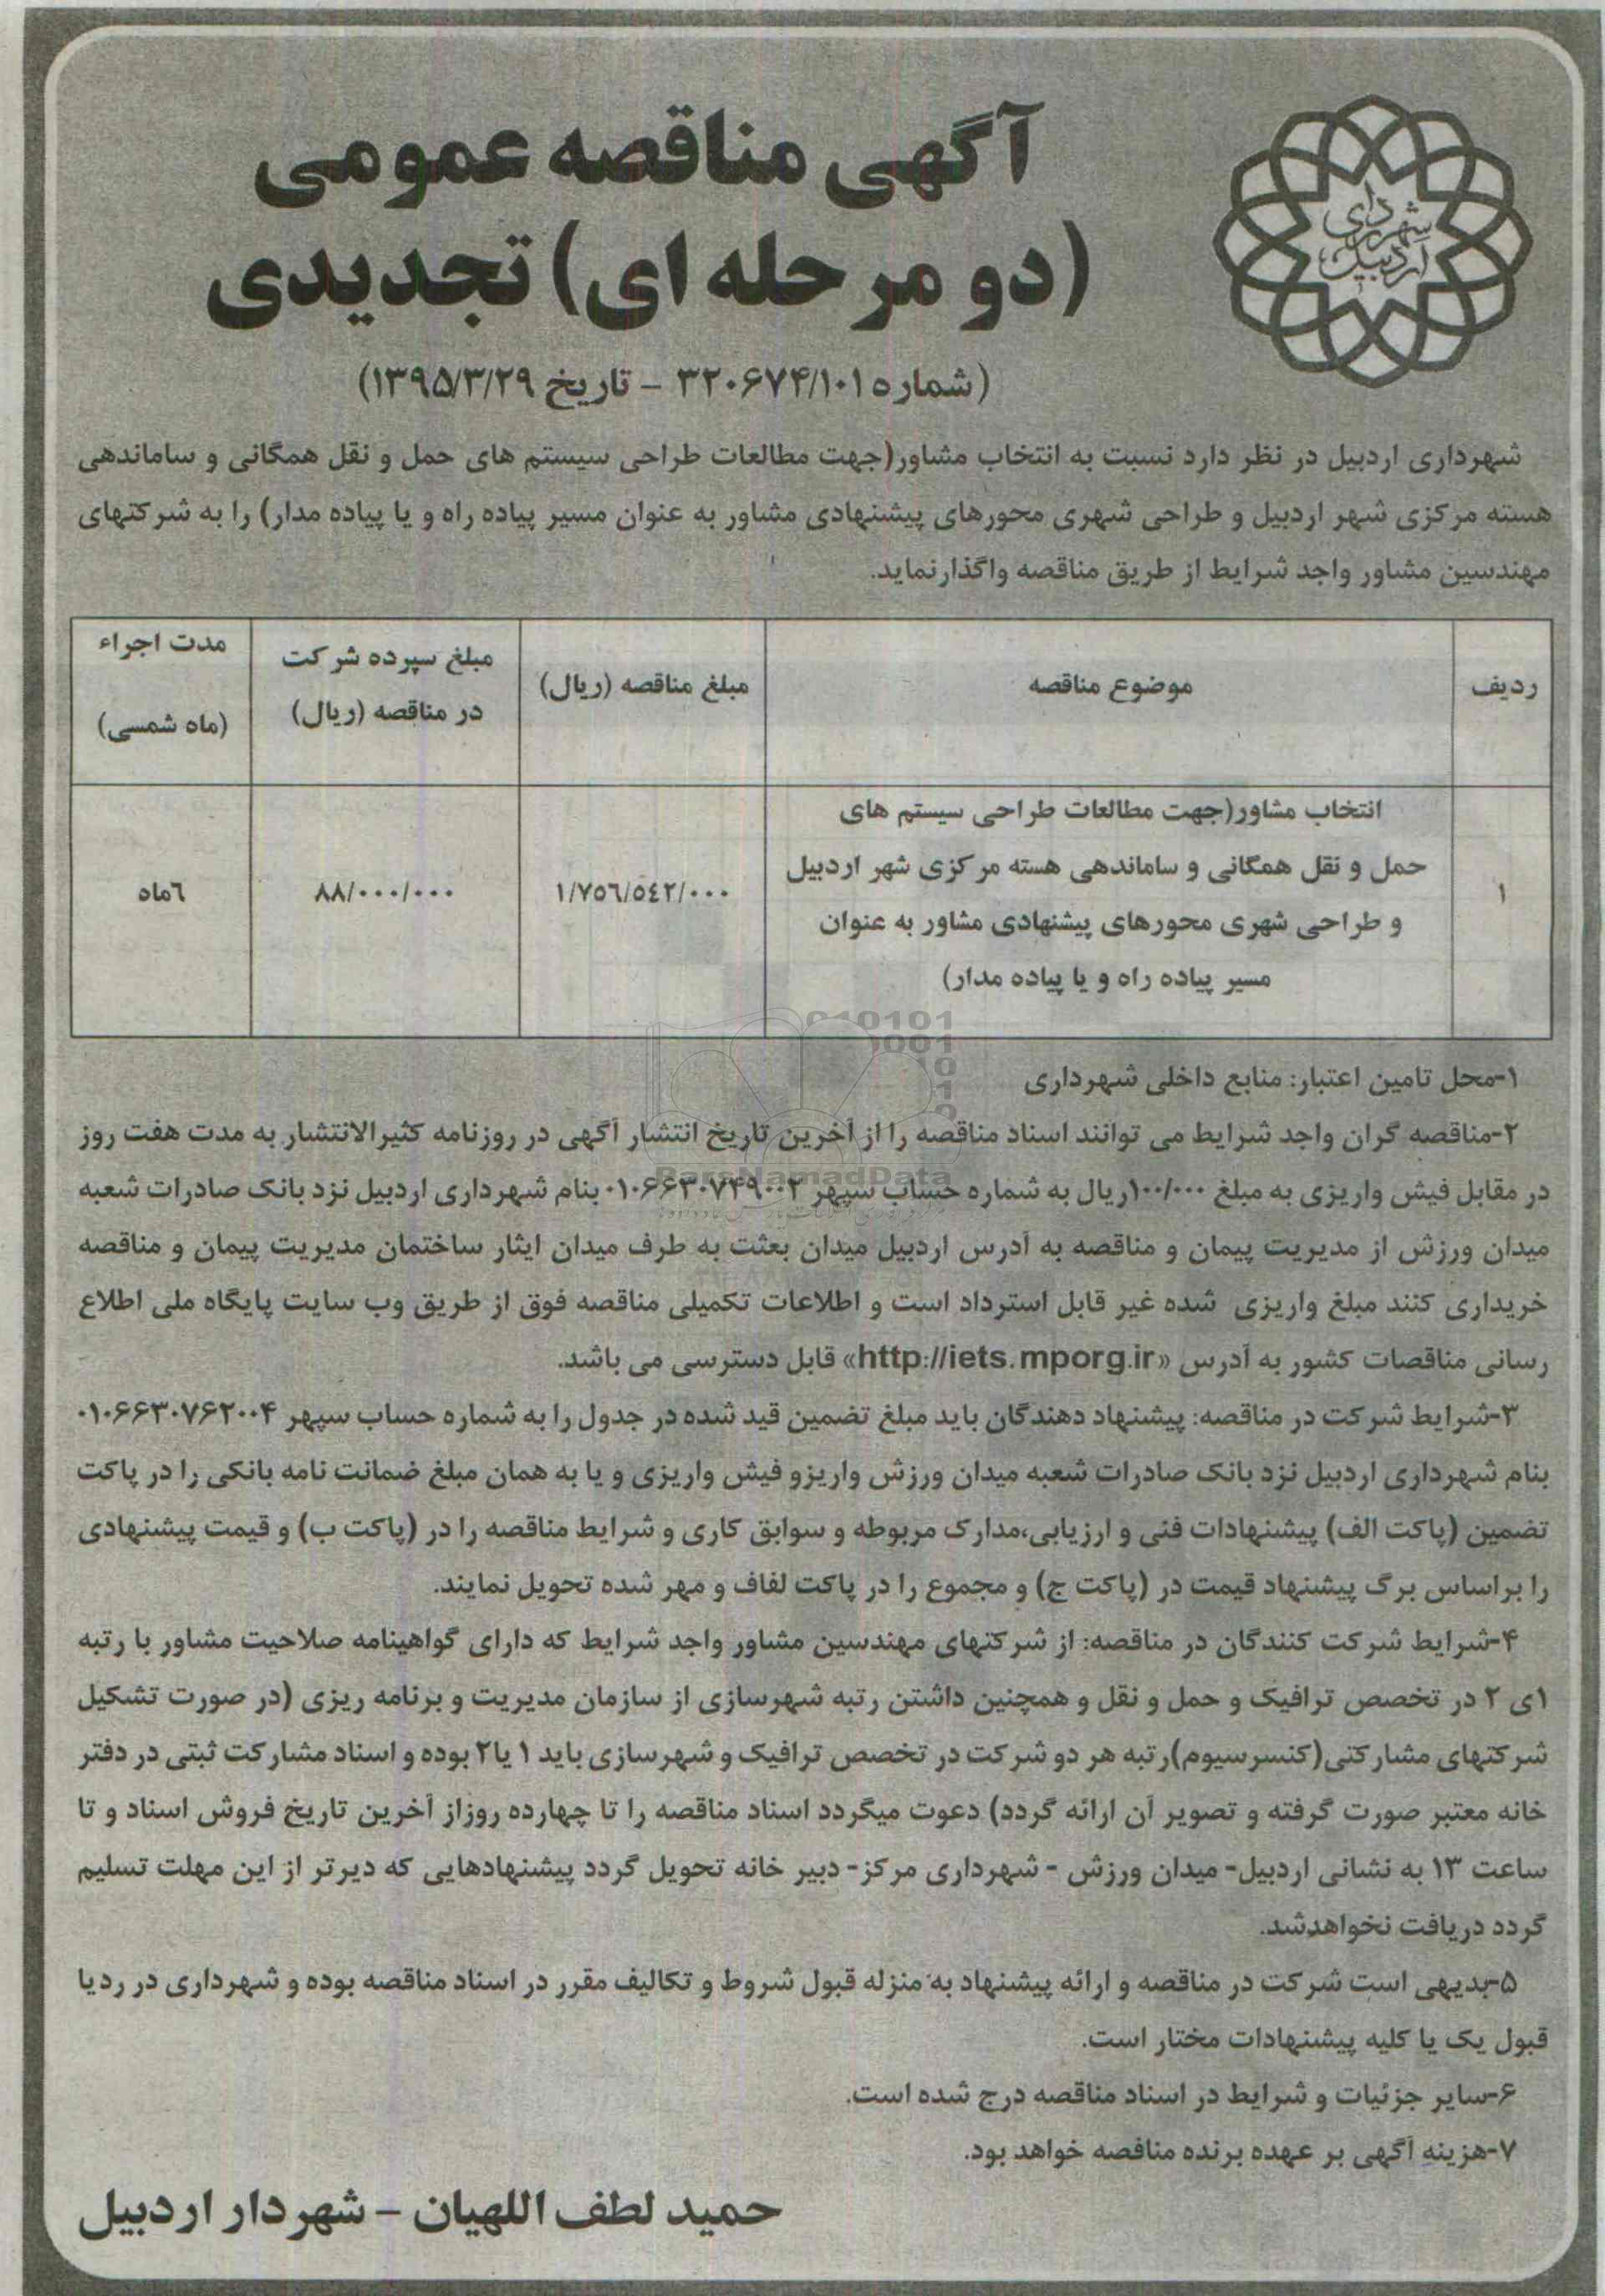 شهرداری اردبیل
آگهی مناقصه عمومی
(دو مرحله ای) تجدیدی
(شماره ۳۲۰۶۷۴/۱۰۱ - تاریخ ۱۳۹۵/۳/۲۹)
شهرداری اردبیل در نظر دارد نسبت به انتخاب مشاور(جهت مطالعات طراحی سیستم های حمل و نقل همگانی و ساماندهی
هسته مرکزی شهر اردبیل و طراحی شهری محورهای پیشنهادی مشاور به عنوان مسیر پیاده راه و یا پیاده مدار) را به شرکتهای
مهندسین مشاور واجد شرایط از طریق مناقصه واگذارنماید.
ردیف
موضوع مناقصه
مبلغ مناقصه (ریال)
مبلغ سپرده شرکت
در مناقصه (ریال)
مدت اجراء
(ماه شمسی)
۱
انتخاب مشاور(جهت مطالعات طراحی سیستم های
حمل و نقل همگانی و ساماندهی هسته مرکزی شهر اردبیل
و طراحی شهری محورهای پیشنهادی مشاور به عنوان
مسیر پیاده راه و یا پیاده مدار)
۱/۷٥٦/٥٤۲/۰۰۰
۸۸/۰۰۰/۰۰۰
٦ماه
۱-محل تامین اعتبار: منابع داخلی شهرداری
۲-مناقصه گران واجد شرایط می توانند اسناد مناقصه را از آخرین تاریخ انتشار آگهی در روزنامه کثیرالانتشار به مدت هفت روز
در مقابل فیش واریزی به مبلغ ۱۰۰/۰۰۰ریال به شماره حساب سپهر ۰۱۰۶۶۳۰۷۴۹۰۰۲ بنام شهرداری اردبیل نزد بانک صادرات شعبه
میدان ورزش از مدیریت پیمان و مناقصه به آدرس اردبیل میدان بعثت به طرف میدان ایثار ساختمان مدیریت پیمان و مناقصه
خریداری کنند مبلغ واریزی شده غیر قابل استرداد است و اطلاعات تکمیلی مناقصه فوق از طریق وب سایت پایگاه ملی اطلاع
رسانی مناقصات کشور به آدرس «http://iets.mporg.ir» قابل دسترسی می باشد.
۳-شرایط شرکت در مناقصه: پیشنهاد دهندگان باید مبلغ تضمین قید شده در جدول را به شماره حساب سپهر ۰۱۰۶۶۳۰۷۶۲۰۰۴
بنام شهرداری اردبیل نزد بانک صادرات شعبه میدان ورزش واریزو فیش واریزی و یا به همان مبلغ ضمانت نامه بانکی را در پاکت
تضمین (پاکت الف) پیشنهادات فنی و ارزیابی،مدارک مربوطه و سوابق کاری و شرایط مناقصه را در (پاکت ب) و قیمت پیشنهادی
را براساس برگ پیشنهاد قیمت در (پاکت ج) و مجموع را در پاکت لفاف و مهر شده تحویل نمایند.
۴-شرایط شرکت کنندگان در مناقصه: از شرکتهای مهندسین مشاور واجد شرایط که دارای گواهینامه صلاحیت مشاور با رتبه
۱ی ۲ در تخصص ترافیک و حمل و نقل و همچنین داشتن رتبه شهرسازی از سازمان مدیریت و برنامه ریزی (در صورت تشکیل
شرکتهای مشارکتی(کنسرسیوم)رتبه هر دو شرکت در تخصص ترافیک و شهرسازی باید ۱ یا۲ بوده و اسناد مشارکت ثبتی در دفتر
خانه معتبر صورت گرفته و تصویر آن ارائه گردد) دعوت میگردد اسناد مناقصه را تا چهارده روزاز آخرین تاریخ فروش اسناد و تا
ساعت ۱۳ به نشانی اردبیل- میدان ورزش - شهرداری مرکز- دبیر خانه تحویل گردد پیشنهادهایی که دیرتر از این مهلت تسلیم
گردد دریافت نخواهدشد.
۵-بدیهی است شرکت در مناقصه و ارائه پیشنهاد به منزله قبول شروط و تکالیف مقرر در اسناد مناقصه بوده و شهرداری در ردیا
قبول یک یا کلیه پیشنهادات مختار است.
۶-سایر جزئیات و شرایط در اسناد مناقصه درج شده است.
۷-هزینه آگهی بر عهده برنده منافصه خواهد بود.
حمید لطف اللهیان - شهردار اردبیل
ParsNamadData